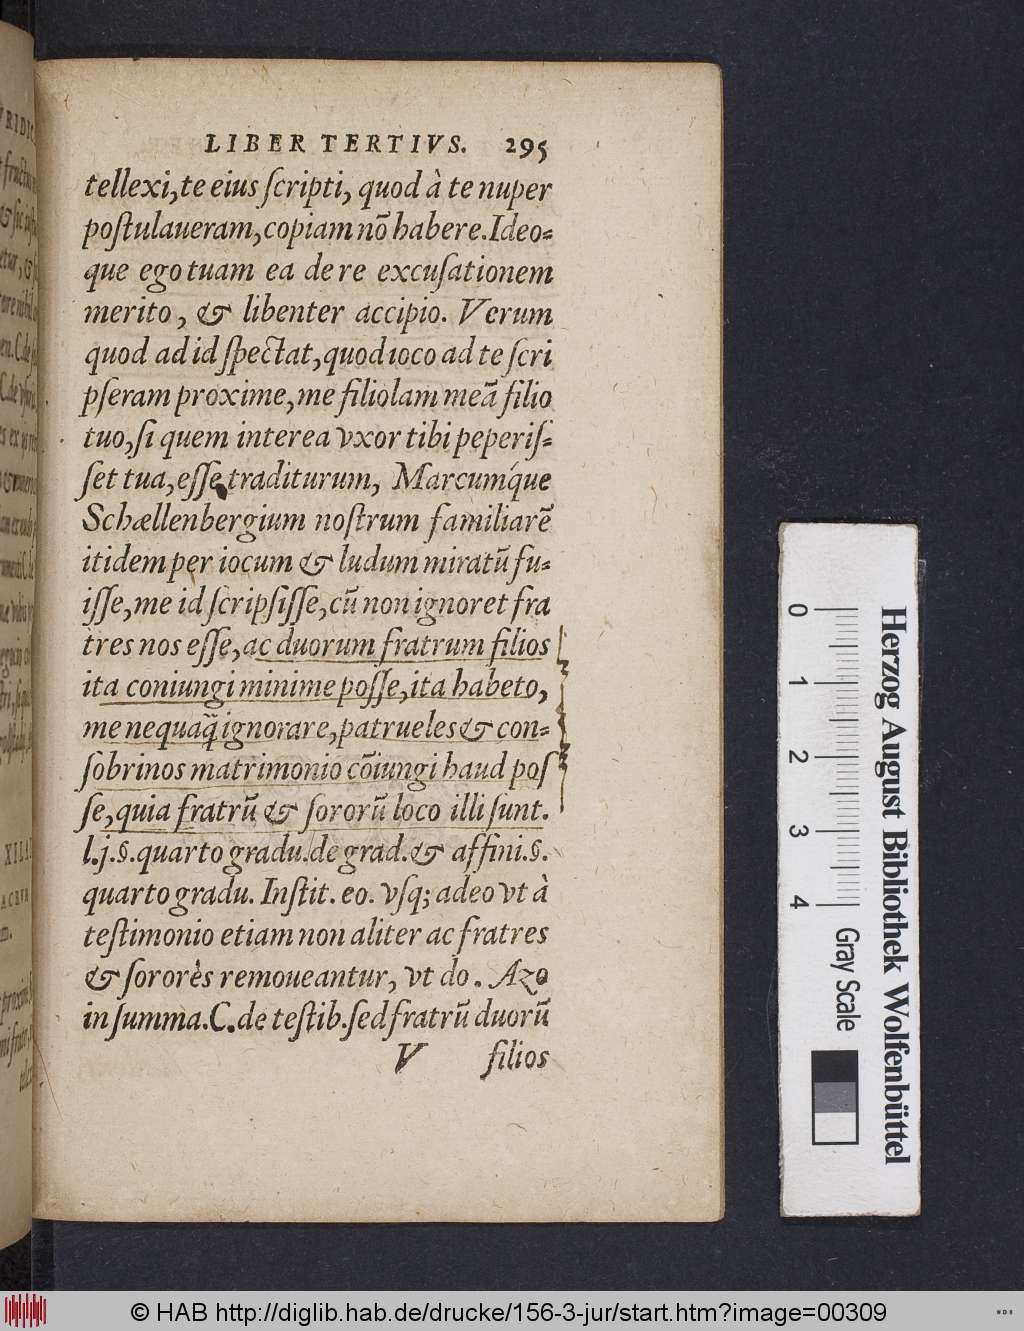 LIBER TERTIVS. 295
tellexi, te eius ſcripti, quod à te nuper
poſtulaueram, copiam nō habere. Ideo=
que ego tuam ea de re excuſationem
merito, & libenter accipio. Verum
quod ad id ſpectat, quod ioco ad te ſcri
pſeram proxime, me filiolam meā filio
tuo, ſi quem interea vxor tibi peperiſ=
ſet tua, eſſe traditurum, Marcumq́ue
Schællenbergium noſtrum familiarē
itidem per iocum & ludum miratū fu=
iſſe, me id ſcripſiſſe, cū non ignoret fra
tres nos eſſe, ac duorum fratrum filios
ita coniungi minime poſſe, ita habeto,
me nequaq̃ ignorare, patrueles & con=
ſobrinos matrimonio cōiungi haud poſ
ſe, quia fratrū & ſororū loco illi ſunt.
l.j.§. quarto gradu. de grad. & affini. §.
quarto gradu. Inſtit. eo. vſq; adeo vt à
teſtimonio etiam non aliter ac fratres
& ſororès remoueantur, vt do. Azo
in ſumma. C. de teſtib. ſed fratrū duorū
V filios
Herzog August Bibliothek Wolfenbüttel
0 1 2 3 4 Gray Scale
© HAB http://diglib.hab.de/drucke/156-3-jur/start.htm?image=00309